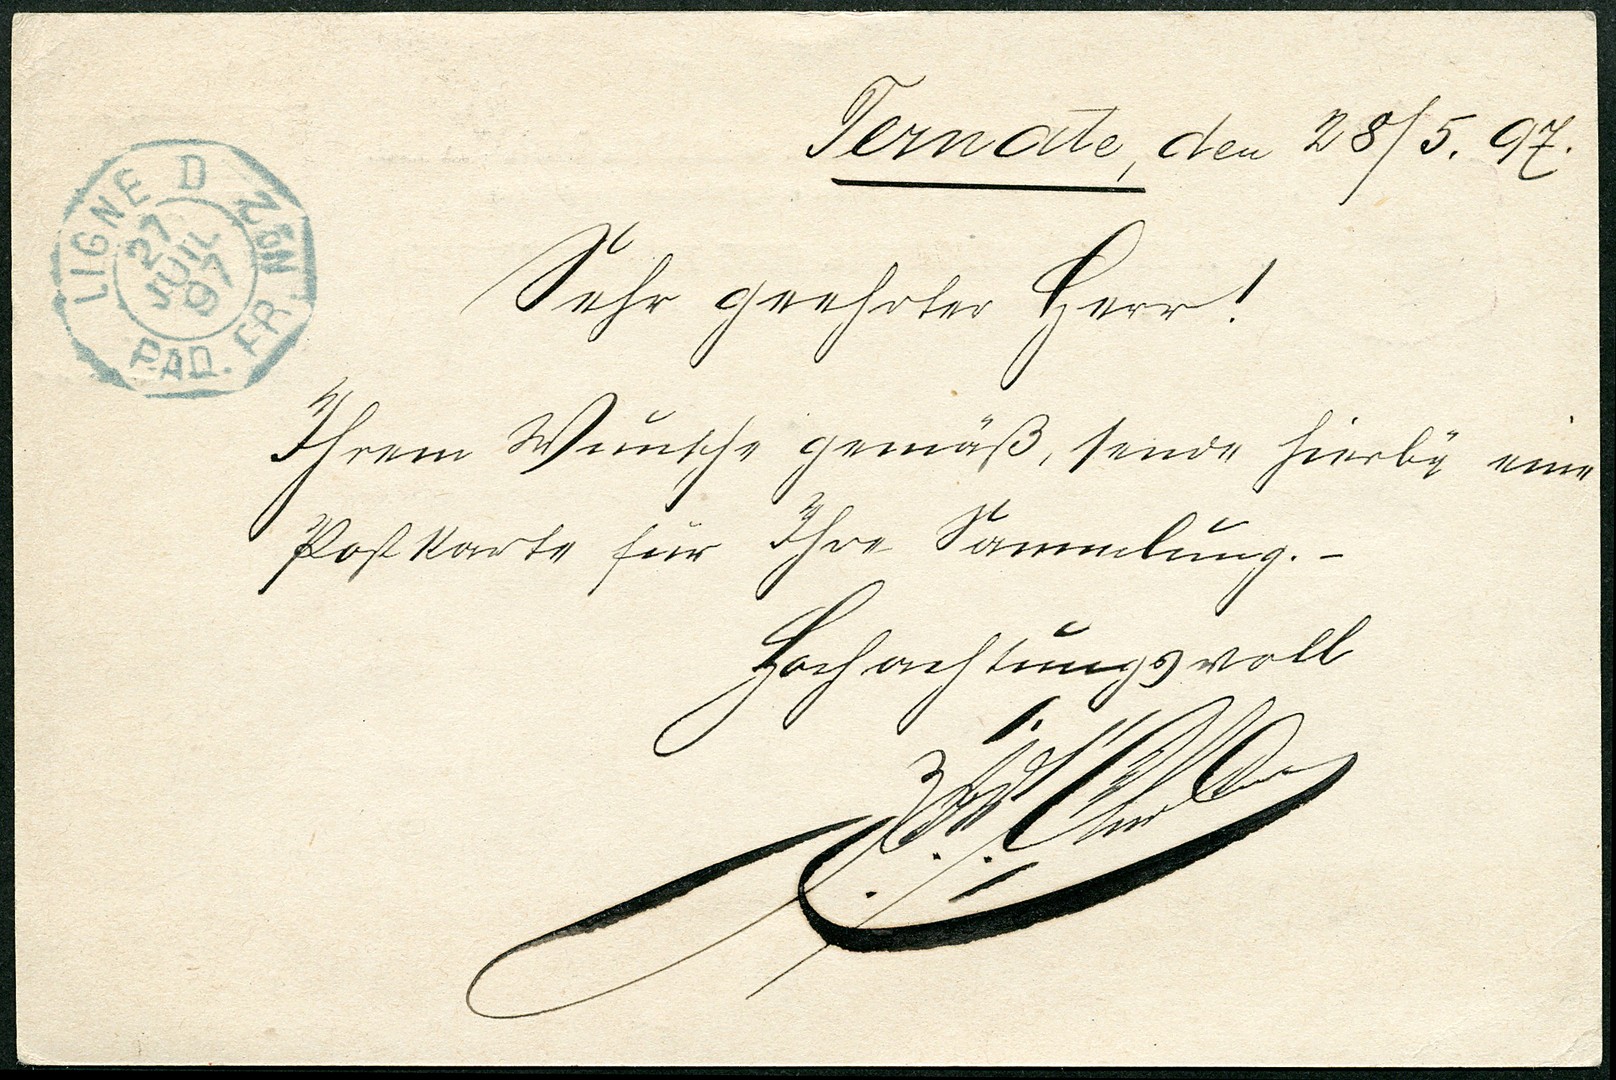 Ternate, den 28/5. 97.
LIGNE D
27
JUIL
97
PAQ. FR. Nº2
Sehr geehrter Herr!
Ihrem Wunsche gemäß, sende hierbÿ eine
Postkarte für Ihre Sammlung. –
Hochachtungsvoll